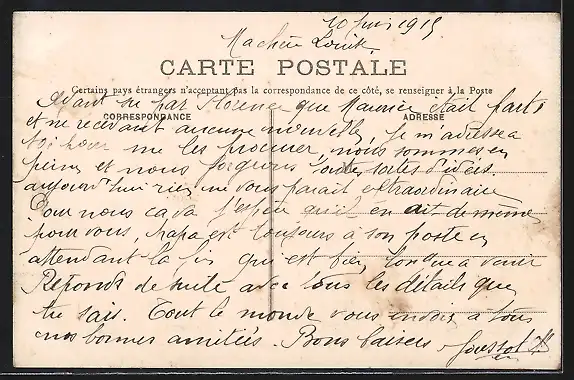 10 juin 1915
Ma chère Louise,
CARTE POSTALE
Certains pays étrangers n'acceptant pas la correspondance de ce côté, se renseigner à la Poste
CORRESPONDANCE
ADRESSE
Ayant su par Florence que Maurice était parti
et ne recevant aucune nouvelle, je m'adresse à
toi pour me les procurer, nous sommes en
peine et nous forgeons toutes sortes d'idées.
aujourd'hui rien ne vous paraît extraordinaire
Pour nous ca va j'espère qu'il en ait de même
pour vous, papa est toujours à son poste en
attendant la fin qui est bien longue a venir
Réponds de suite avec tous les détails que
tu sais. Tout le monde vous envoie à tous
nos bonnes amitiés. Bons baisers